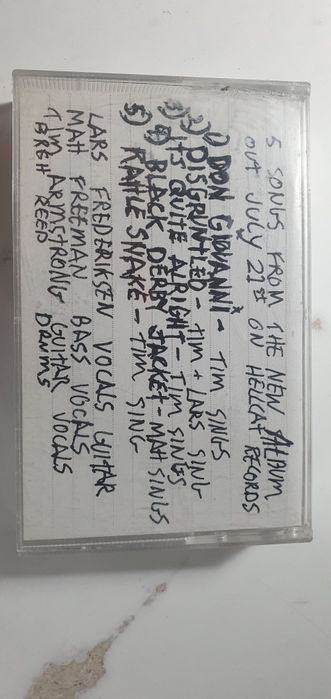 5 SONGS FROM THE NEW ALBUM
OUT JULY 21st ON HELLCAT RECORDS
1) DON GIOVANNI - TIM SINGS
2) DISGRUNTLED - TIM + LARS SING
3) ITS QUITE ALRIGHT - TIM SINGS
4) BLACK DERBY JACKET - MATT SINGS
5) RATTLESNAKE - TIM SING
LARS FREDERIKSEN VOCALS GUITAR
MATT FREEMAN BASS VOCALS
TIM ARMSTRONG GUITAR VOCALS
BREH REED DRUMS